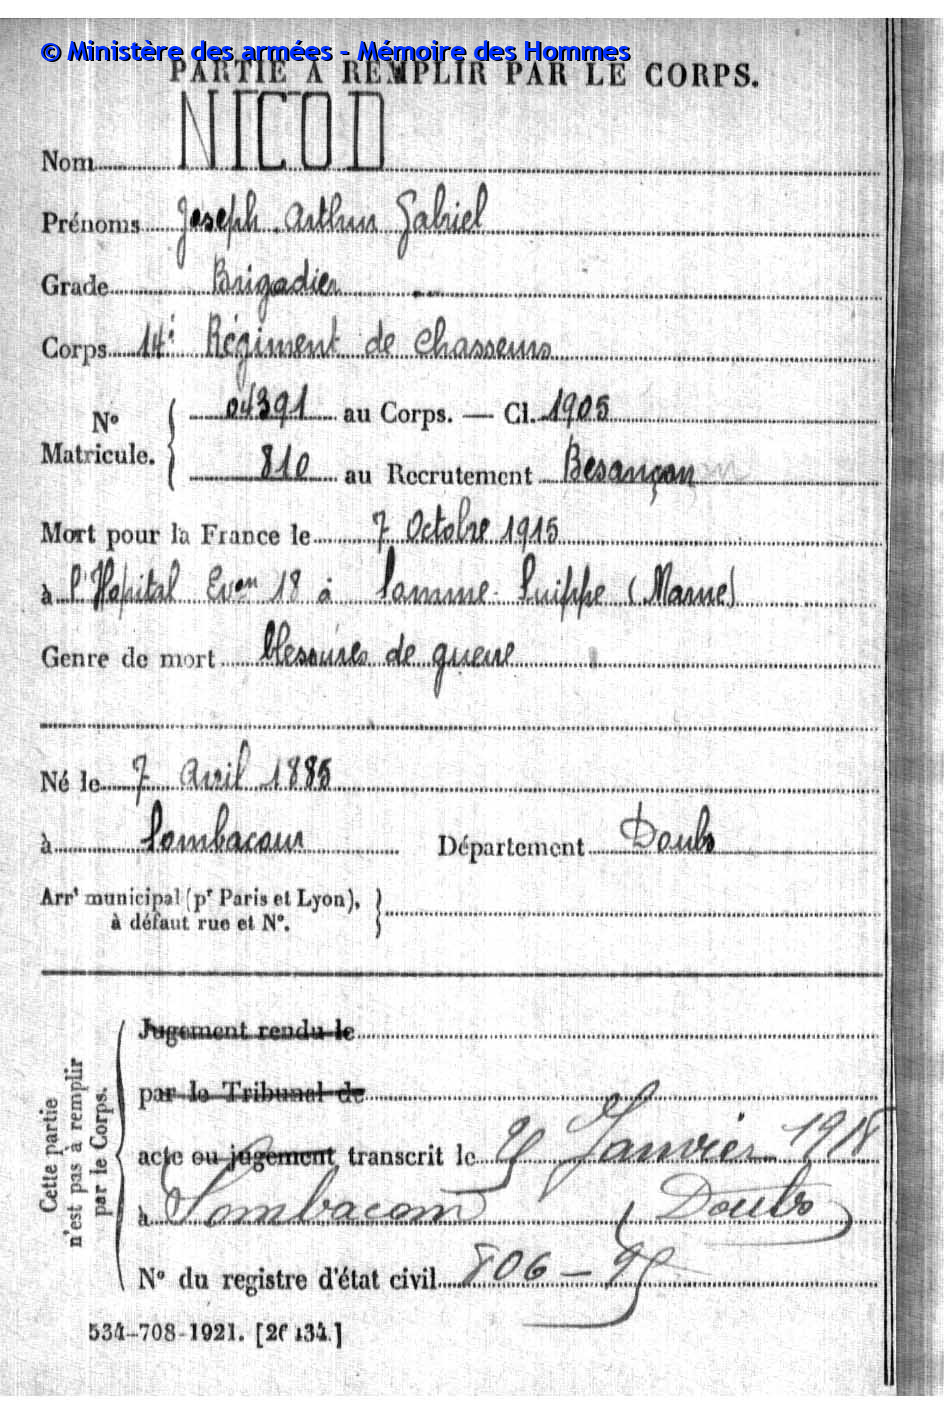 © Ministère des armées - Mémoire des Hommes
PARTIE À REMPLIR PAR LE CORPS.
Nom NICOD
Prénoms Joseph Arthur Gabriel
Grade Brigadier
Corps 14e Régiment de Chasseurs
No Matricule. { 04391 au Corps. — Cl. 1905
810 au Recrutement Besançon
Mort pour la France le 7 Octobre 1915
à l'Hopital Evon 18 à Somme-Suippe (Marne)
Genre de mort blessures de guerre
Né le 7 Avril 1885
à Sombacour Département Doubs
Arrt municipal (pr Paris et Lyon),
à défaut rue et No.
Cette partie n'est pas à remplir par le Corps.
Jugement rendu le
par le Tribunal de
acte ou jugement transcrit le Janvier 1918
à Sombacour (Doubs)
No du registre d'état civil 806 –
534-708-1921. [26434.]